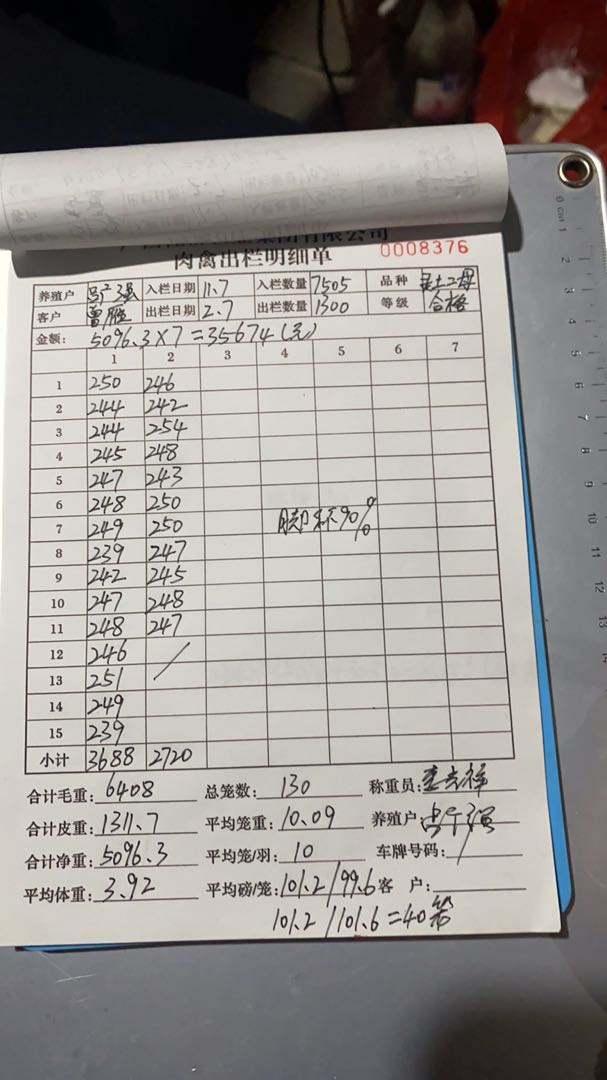 集团有限公司
肉禽出栏明细单 0008376
养殖户 入栏日期 11.7 入栏数量 7505 品种 土2母
客户 曾胜 出栏日期 2.7 出栏数量 1300 等级 合格
金额: 5096.3×7=35674(元)
1 2 3 4 5 6 7
1 250 246
2 244 242
3 244 254
4 245 248
5 247 243
6 248 250
7 249 250 脚杯90%
8 239 247
9 242 245
10 247 248
11 248 247
12 246
13 251
14 249
15 239
小计 3688 2720
合计毛重: 6408 总笼数: 130 称重员:
合计皮重: 1311.7 平均笼重: 10.09 养殖户:
合计净重: 5096.3 平均笼/羽: 10 车牌号码: /
平均体重: 3.92 平均磅/笼: 101.2/99.6 客 户:
101.2/101.6=40笼
0 cm 1
2
3
5
6
7
8
9
10
11
12
13